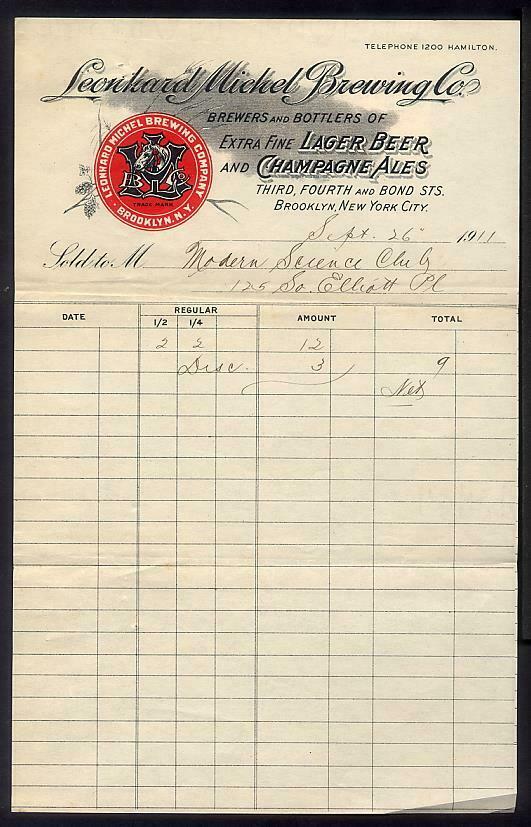 TELEPHONE 1200 HAMILTON.
Leonhard Michel Brewing Co.
BREWERS AND BOTTLERS OF
EXTRA FINE LAGER BEER
AND CHAMPAGNE ALES
THIRD, FOURTH AND BOND STS.
BROOKLYN, NEW YORK CITY.
LEONHARD MICHEL BREWING COMPANY
TRADE MARK
BROOKLYN. N.Y.
Sept. 26" 1911
Sold to M Modern Science Club
125 So. Elliott Pl
DATE REGULAR AMOUNT TOTAL
1/2 1/4
2 2 12
Disc. 3 9
Net